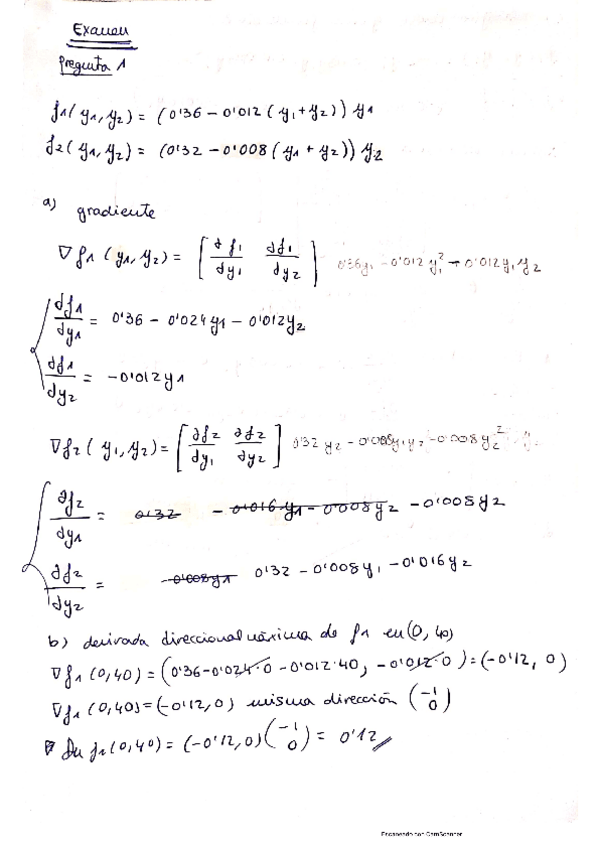 Examen
Pregunta 1
f1(y1, y2) = (0'36 - 0'012(y1+y2)) y1
f2(y1, y2) = (0'32 - 0'008(y1 + y2)) y2
a) gradiente
∇f1(y1, y2) = [∂f1/∂y1 ∂f1/∂y2] 0'36y1 - 0'012y1² - 0'012y1y2
∂f1/∂y1 = 0'36 - 0'024y1 - 0'012y2
∂f1/∂y2 = -0'012y1
∇f2(y1, y2) = [∂f2/∂y1 ∂f2/∂y2] 0'32y2 - 0'008y1y2 - 0'008y2²
∂f2/∂y1 = 0'32 - 0'016y1 - 0'008y2 - 0'008y2
∂f2/∂y2 = -0'008y1 0'32 - 0'008y1 - 0'016y2
b) derivada direccional máxima de f1 en (0, 40)
∇f1(0,40) = (0'36-0'024·0 - 0'012·40, -0'012·0) = (-0'12, 0)
∇f1(0,40) = (-0'12, 0) misma dirección (-1 0)
Du f1(0,40) = (-0'12, 0)(-1 0) = 0'12
Escaneado con CamScanner